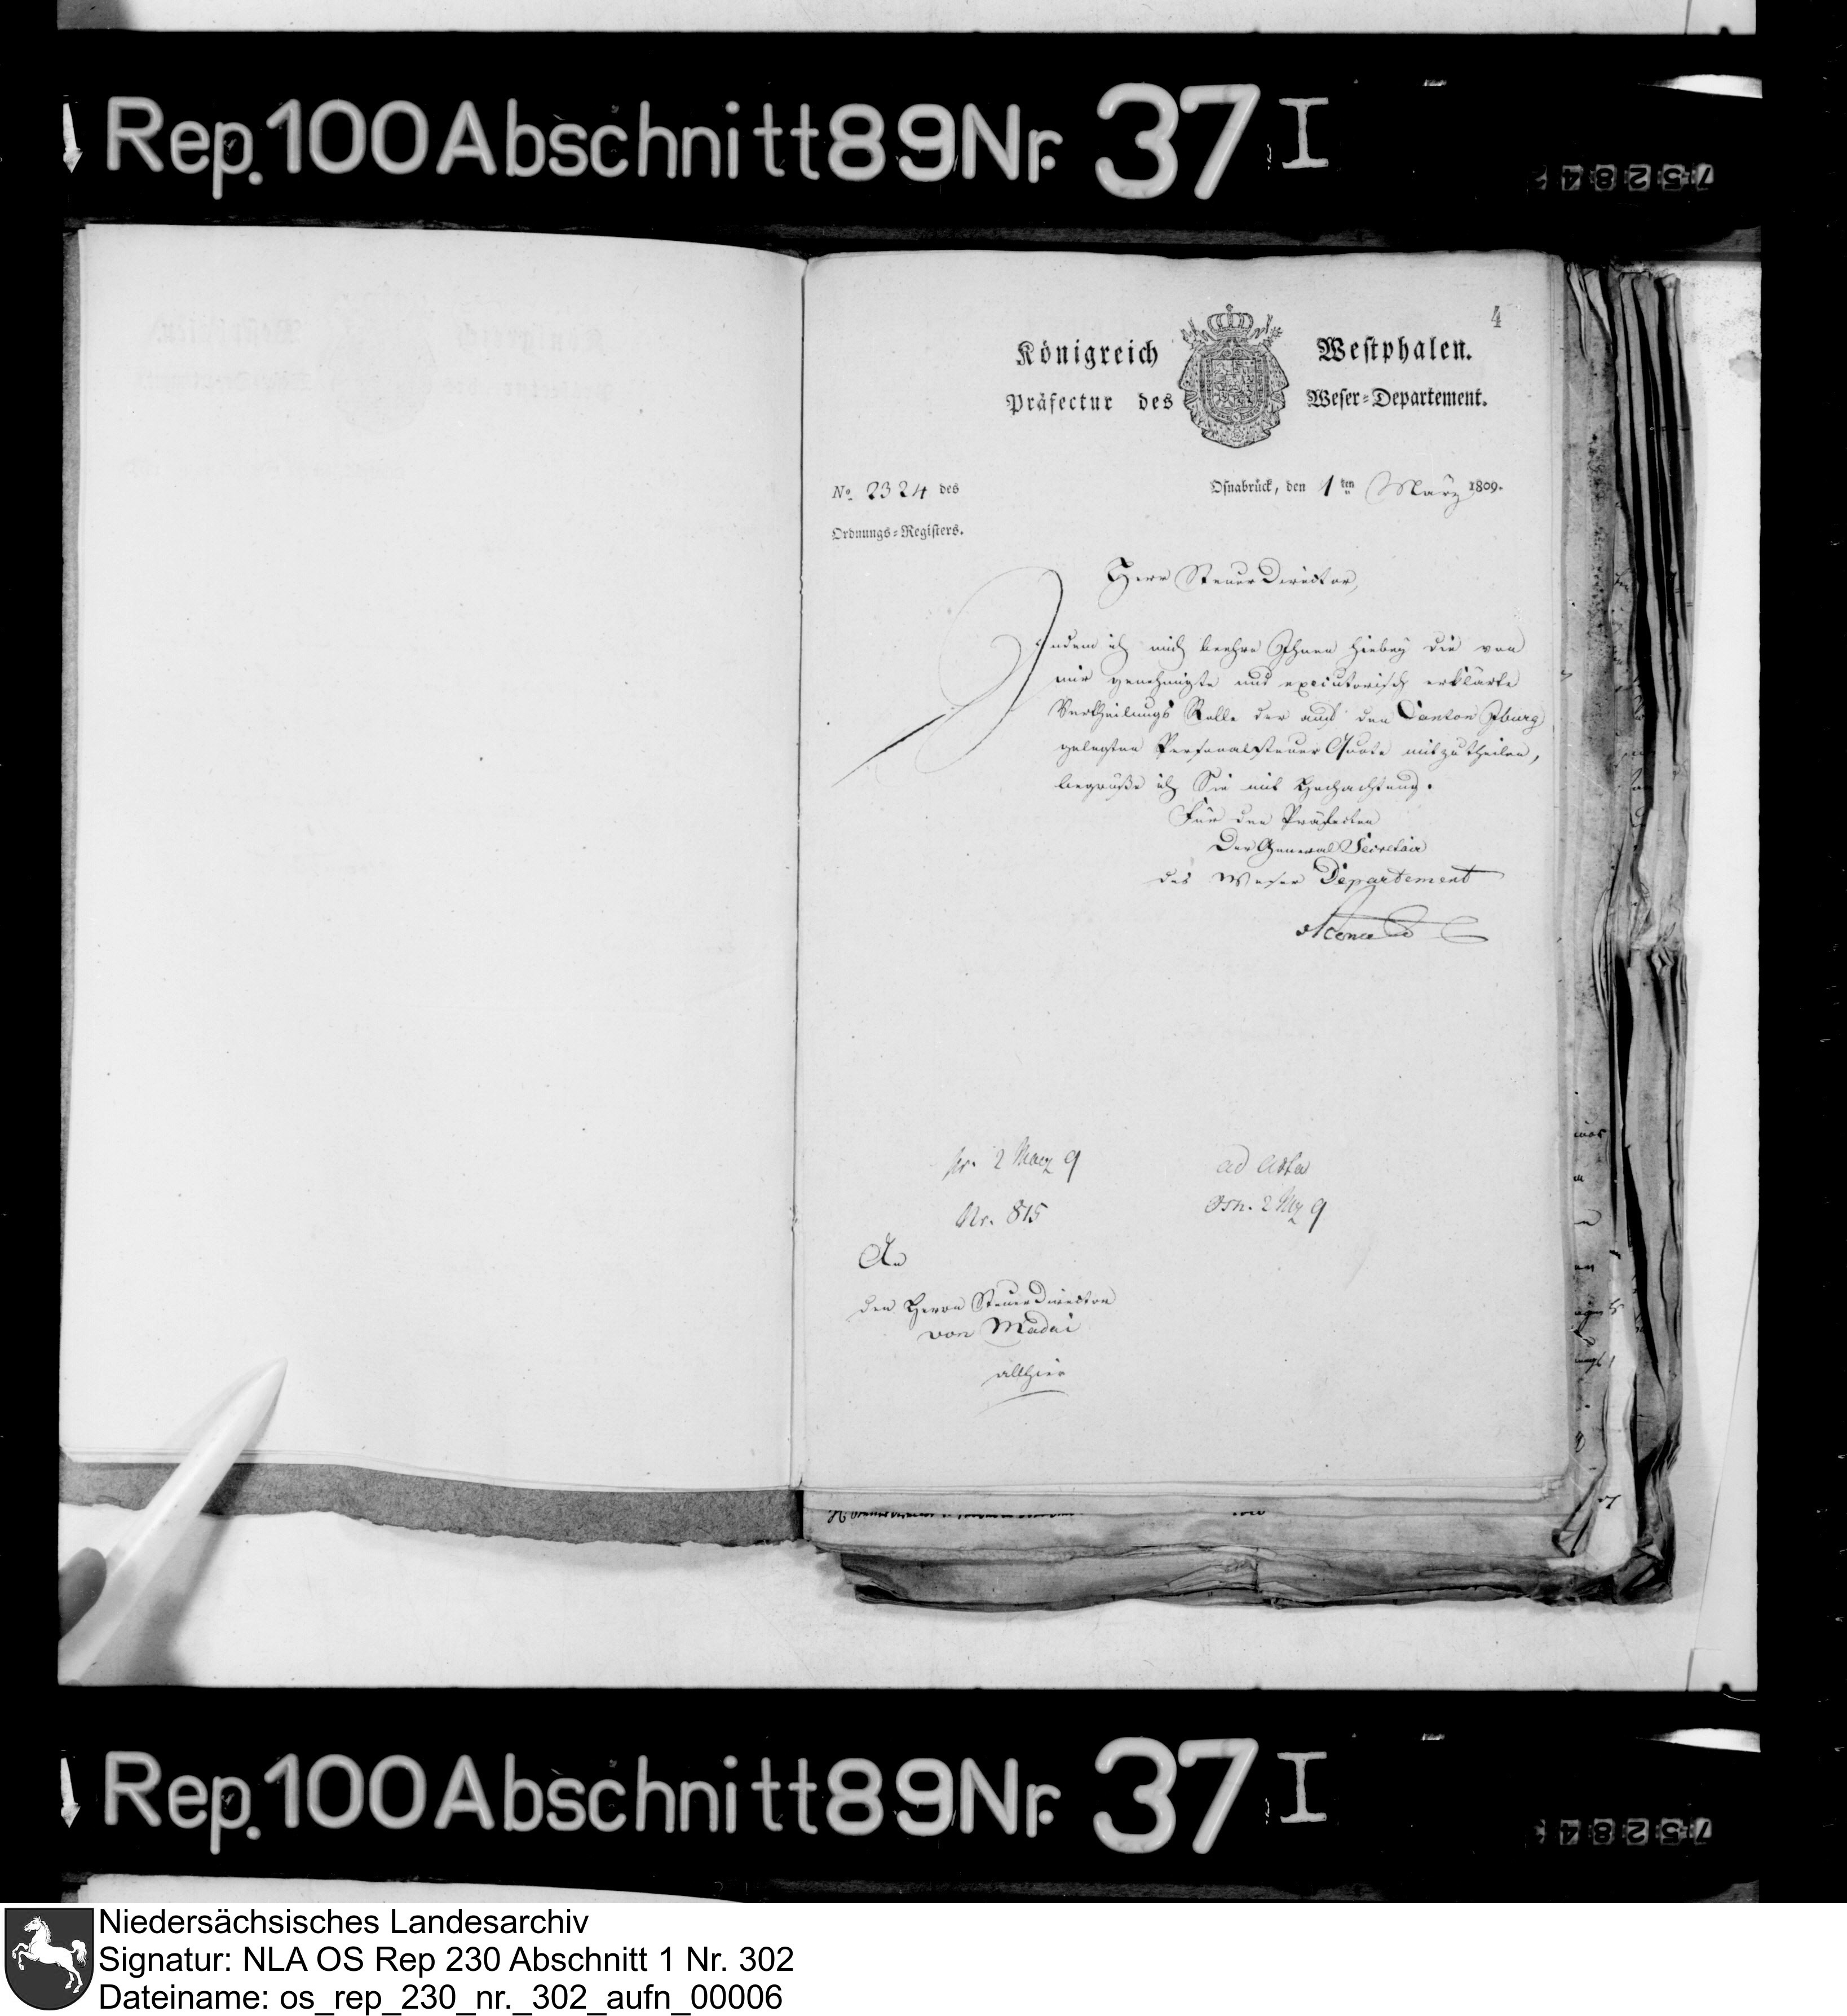 Rep. 100 Abschnitt 89 Nr. 37 I
4
Königreich Westphalen.
Präfectur des Weser-Departement.
No. 2324 des
Ordnungs-Registers.
Osnabrück, den 1ten März 1809.
Herr SteuerDirector,
Indem ich mich beehre Ihnen hiebey die von
mir genehmigte und executorisch erklärte
Vertheilungs Rolle der auf den Canton Iburg
gelegten Personalsteuer Quote mitzutheilen,
begrüße ich Sie mit Hochachtung.
Für den Präfecten
Der General Secretair
des Weser Departement
pr. 2 März 9
Nr. 815
ad acta
Osn. 2 Mz 9
An
den Herrn SteuerDirector
von Madai
allhier
Rep. 100 Abschnitt 89 Nr. 37 I
Niedersächsisches Landesarchiv
Signatur: NLA OS Rep 230 Abschnitt 1 Nr. 302
Dateiname: os_rep_230_nr._302_aufn_00006